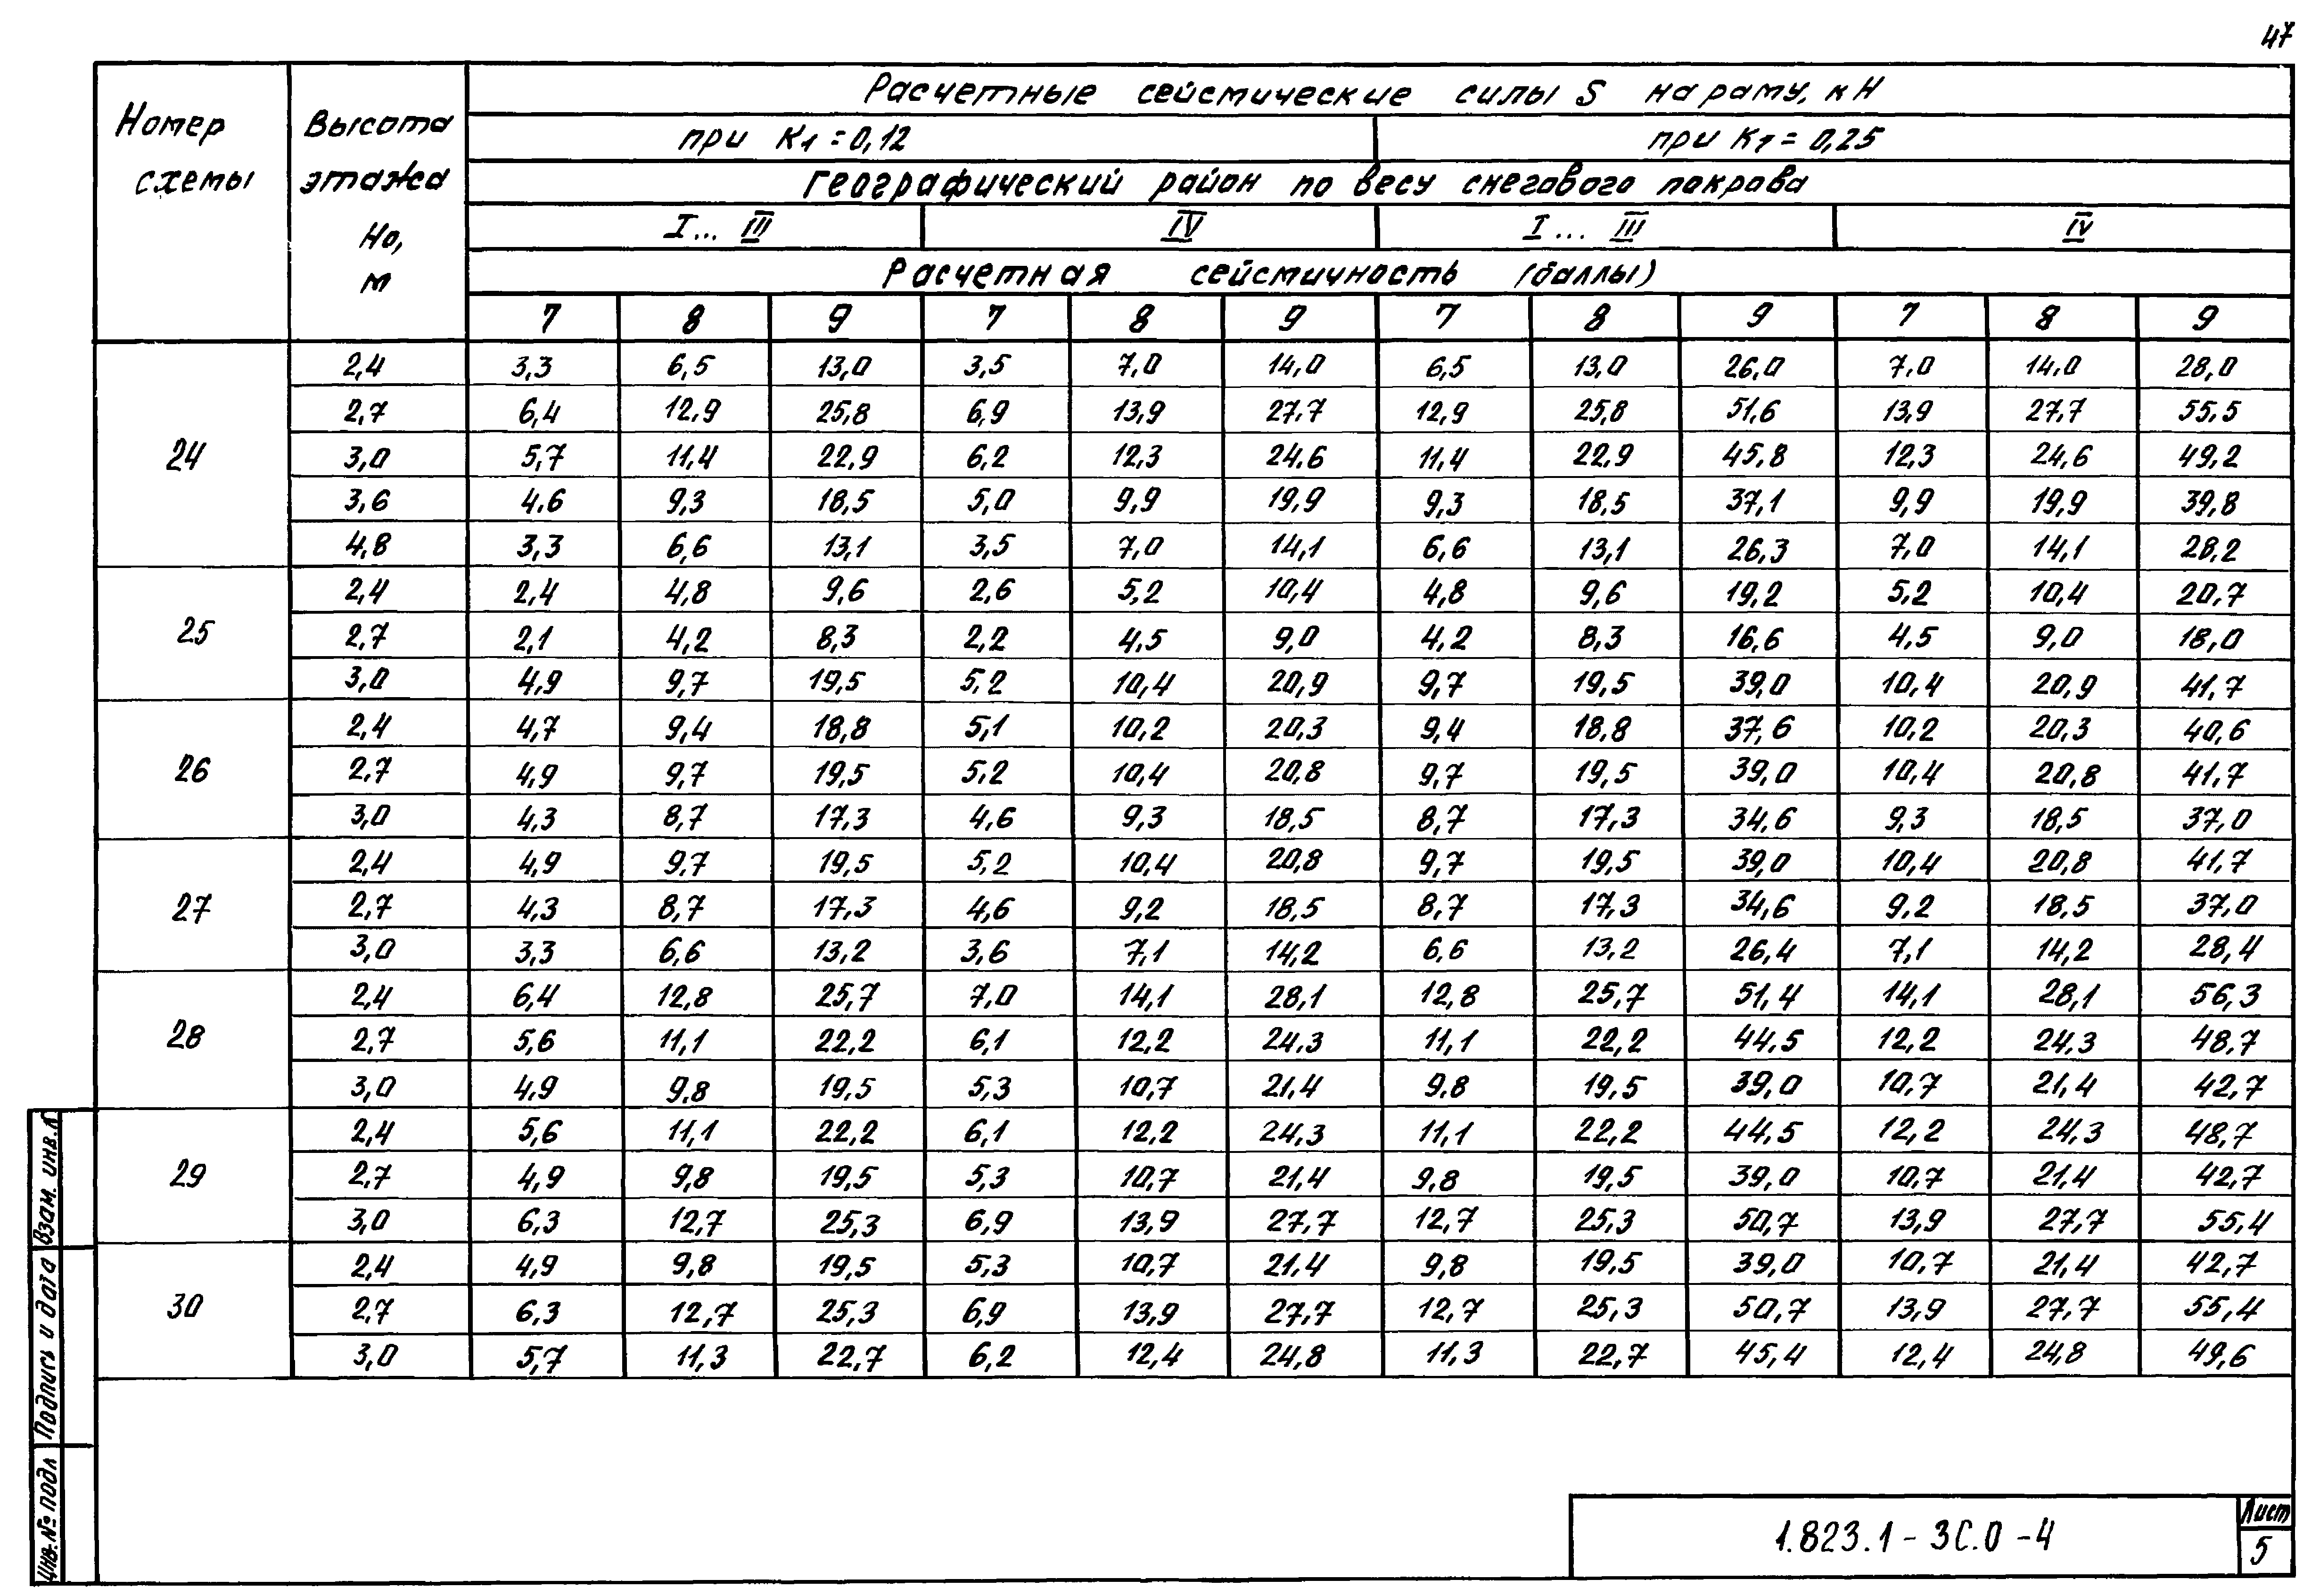 47
Номер схемы
Высота этажа Но, м
Расчетные сейсмические силы S на раму, кН
при К1 = 0,12 при К1 = 0,25
Географический район по весу снегового покрова
I... III IV I... III IV
Расчетная сейсмичность (баллы)
7 8 9 7 8 9 7 8 9 7 8 9
24
2,4 3,3 6,5 13,0 3,5 7,0 14,0 6,5 13,0 26,0 7,0 14,0 28,0
2,7 6,4 12,9 25,8 6,9 13,9 27,7 12,9 25,8 51,6 13,9 27,7 55,5
3,0 5,7 11,4 22,9 6,2 12,3 24,6 11,4 22,9 45,8 12,3 24,6 49,2
3,6 4,6 9,3 18,5 5,0 9,9 19,9 9,3 18,5 37,1 9,9 19,9 39,8
4,8 3,3 6,6 13,1 3,5 7,0 14,1 6,6 13,1 26,3 7,0 14,1 28,2
25
2,4 2,4 4,8 9,6 2,6 5,2 10,4 4,8 9,6 19,2 5,2 10,4 20,7
2,7 2,1 4,2 8,3 2,2 4,5 9,0 4,2 8,3 16,6 4,5 9,0 18,0
3,0 4,9 9,7 19,5 5,2 10,4 20,9 9,7 19,5 39,0 10,4 20,9 41,7
26
2,4 4,7 9,4 18,8 5,1 10,2 20,3 9,4 18,8 37,6 10,2 20,3 40,6
2,7 4,9 9,7 19,5 5,2 10,4 20,8 9,7 19,5 39,0 10,4 20,8 41,7
3,0 4,3 8,7 17,3 4,6 9,3 18,5 8,7 17,3 34,6 9,3 18,5 37,0
27
2,4 4,9 9,7 19,5 5,2 10,4 20,8 9,7 19,5 39,0 10,4 20,8 41,7
2,7 4,3 8,7 17,3 4,6 9,2 18,5 8,7 17,3 34,6 9,2 18,5 37,0
3,0 3,3 6,6 13,2 3,6 7,1 14,2 6,6 13,2 26,4 7,1 14,2 28,4
28
2,4 6,4 12,8 25,7 7,0 14,1 28,1 12,8 25,7 51,4 14,1 28,1 56,3
2,7 5,6 11,1 22,2 6,1 12,2 24,3 11,1 22,2 44,5 12,2 24,3 48,7
3,0 4,9 9,8 19,5 5,3 10,7 21,4 9,8 19,5 39,0 10,7 21,4 42,7
29
2,4 5,6 11,1 22,2 6,1 12,2 24,3 11,1 22,2 44,5 12,2 24,3 48,7
2,7 4,9 9,8 19,5 5,3 10,7 21,4 9,8 19,5 39,0 10,7 21,4 42,7
3,0 6,3 12,7 25,3 6,9 13,9 27,7 12,7 25,3 50,7 13,9 27,7 55,4
30
2,4 4,9 9,8 19,5 5,3 10,7 21,4 9,8 19,5 39,0 10,7 21,4 42,7
2,7 6,3 12,7 25,3 6,9 13,9 27,7 12,7 25,3 50,7 13,9 27,7 55,4
3,0 5,7 11,3 22,7 6,2 12,4 24,8 11,3 22,7 45,4 12,4 24,8 49,6
Взам. инв.№
Подпись и дата
Инв.№ подл
1.823.1-3С.0-4
Лист
5